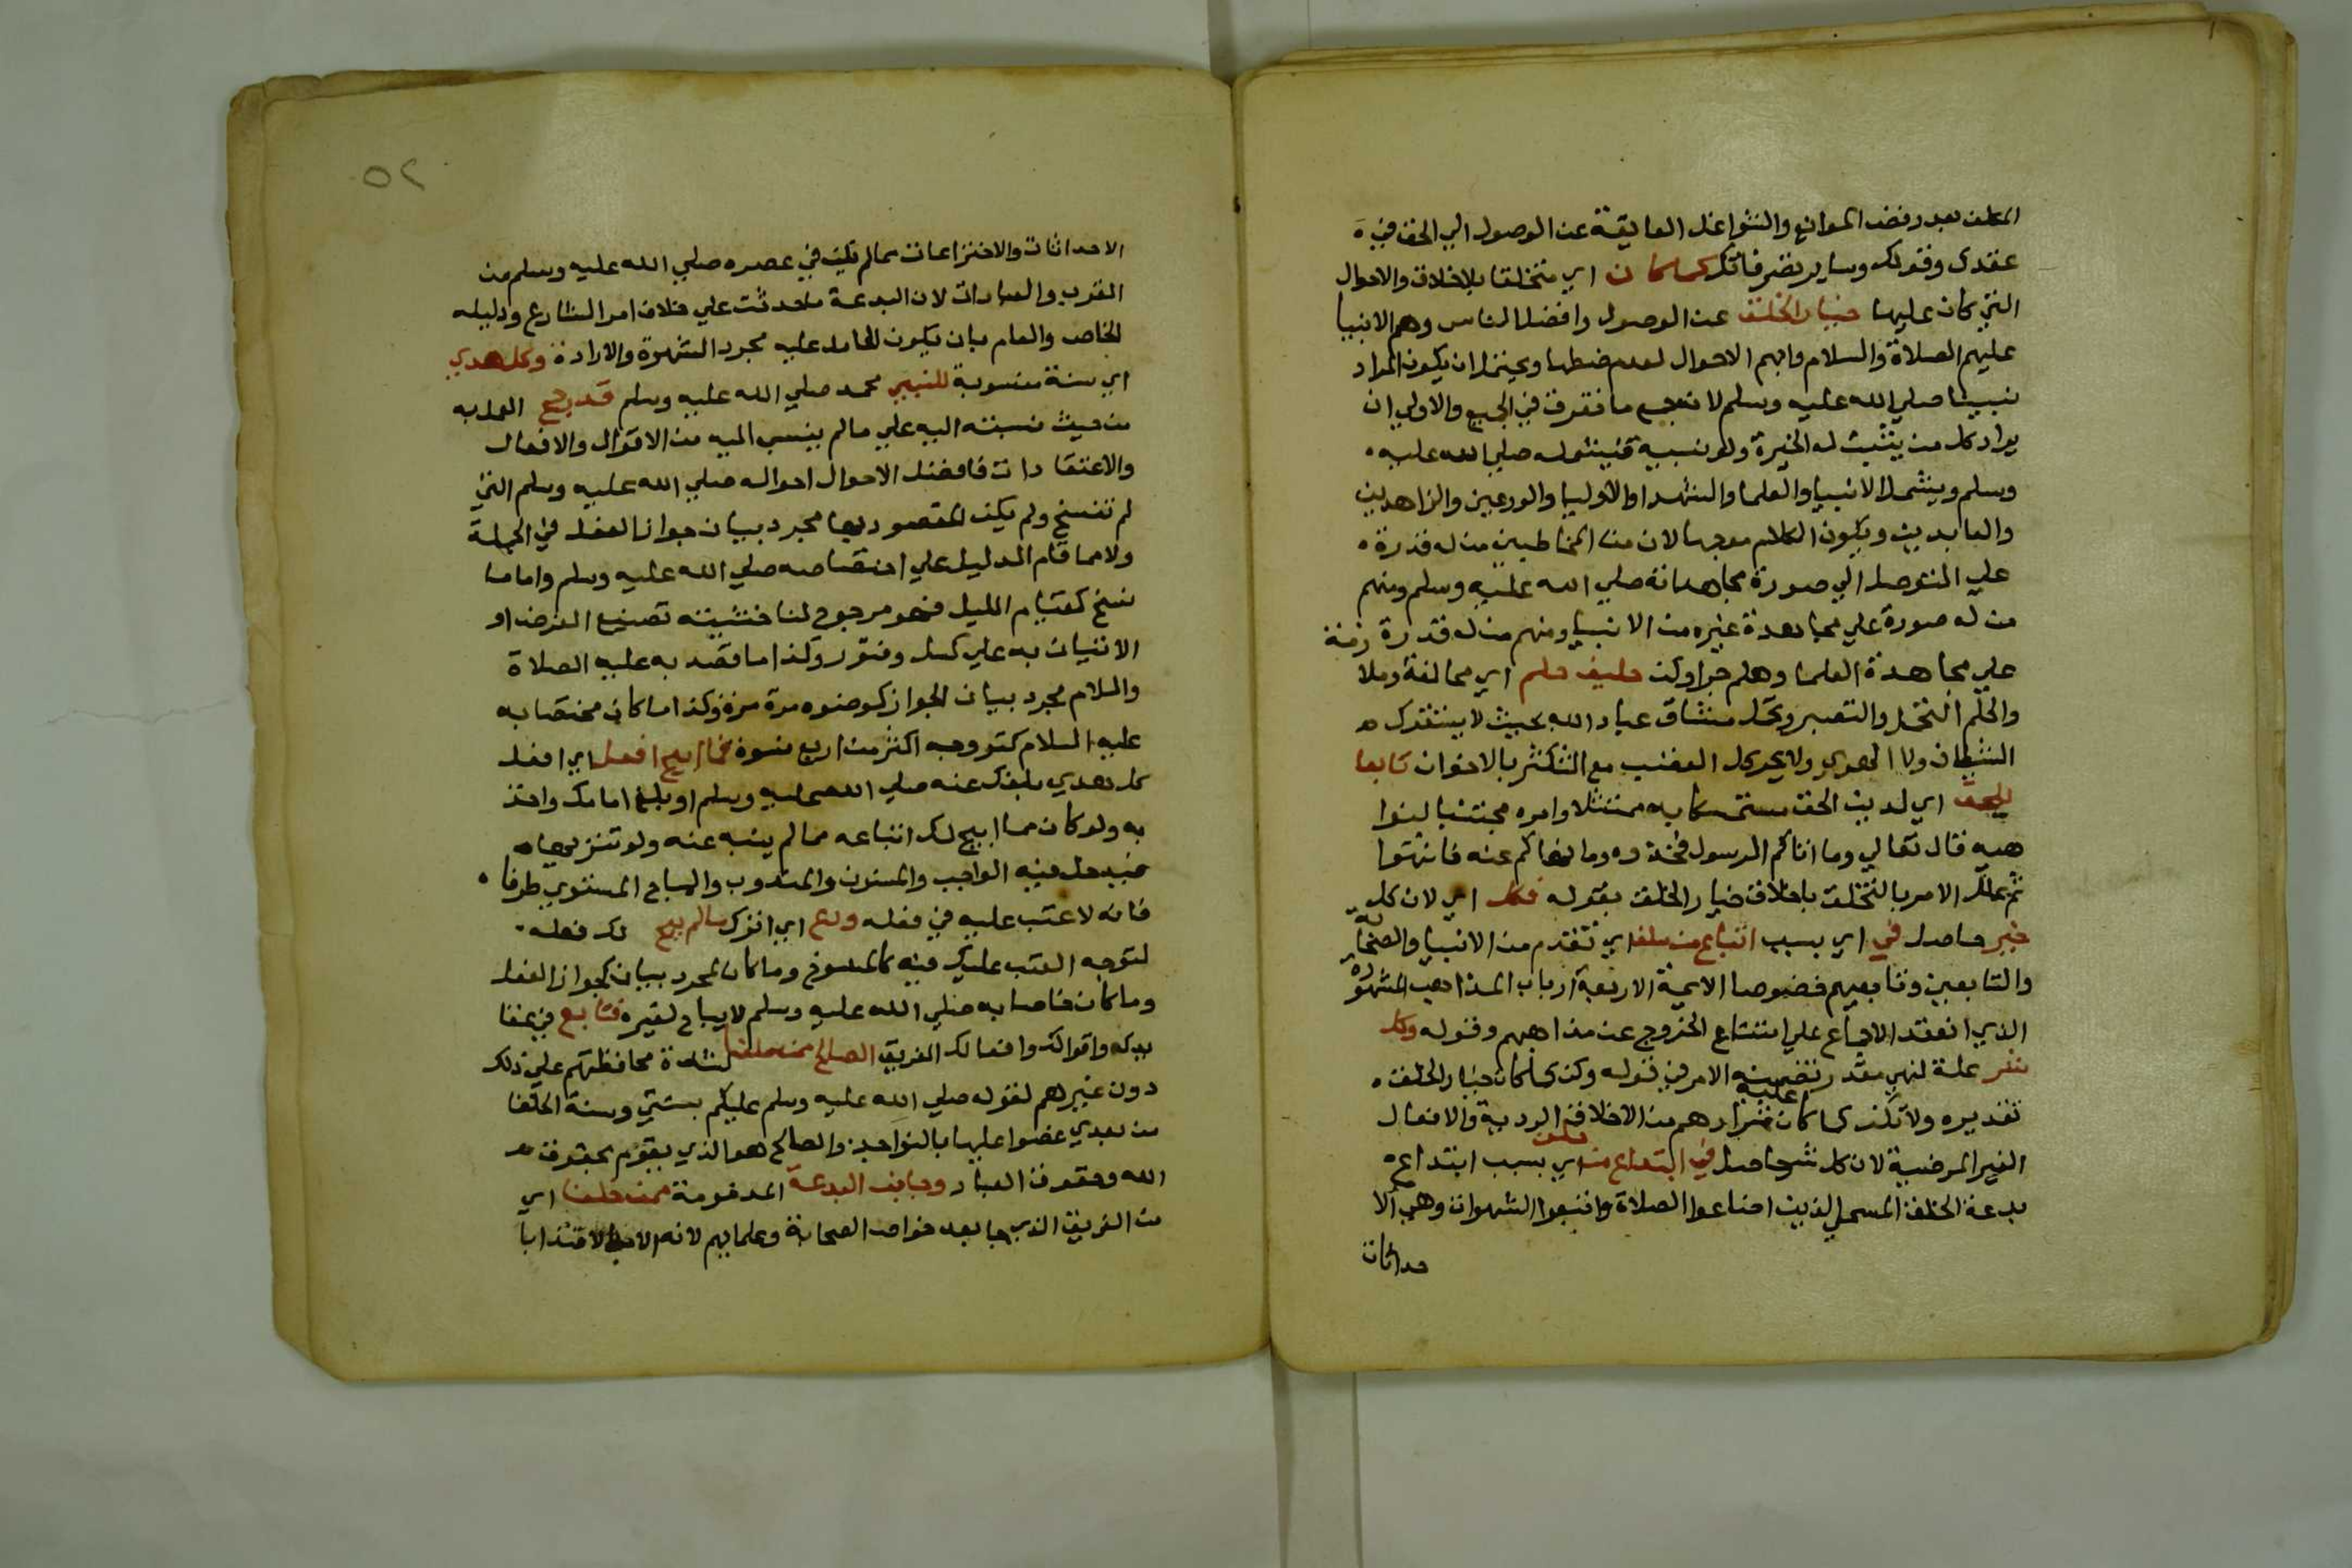 المكلف بعد رفض الموانع والشواغل العايقة عن الوصول الي الحق في
عقدك وقولك وساير تصرفاتك كما كان اي متخلقا بالاخلاق والاحوال
التي كان عليها خيار الخلق عند الوصول وافضل الناس وهم الانبيا
عليهم الصلاة والسلام وابهم الاحوال لعدم ضبطها ويحتمل ان يكون المراد
نبينا صلي الله عليه وسلم لانه جمع ما تفرق في الجميع والاولي ان
يراد كل من يثبت له الخيرة ولو نسبية فيشمله صلي الله عليه
وسلم ويشمل الانبيا والعلما والشهدا والاوليا والورعين والزاهدين
والعابدين ويكون الكلام موجها لان من المخاطبين من له قدرة
علي التوصل الي صورة مجاهداته صلي الله عليه وسلم ومنهم
من له صورة علي مجاهدة غيره من الانبيا ومنهم من له قدرة
علي مجاهدة العلما وهلم جرا وكن حليف حلم اي مخالفه وملا
والحلم التحمل والتصبر وتحمل مشاق عباد الله بحيث لا يستفزك
الشيطان ولا الهوي ولا يحركك الغضب مع التكثر بالاخوان تابعا
للحق اي لدين الحق مستمسكا به ممتثلا اوامره مجتنبا لنوا
هيه قال تعالي وما اتاكم الرسول فخذوه وما نهاكم عنه فانتهوا
ثم علل الامر بالتخلق باخلاق خيار الخلق بقوله فكل اي لان كل
خير حاصل في اي بسبب اتباع من سلف اي تقدم من الانبيا والصحابة
والتابعين وتابعيهم خصوصا الايمة الاربعة ارباب المذاهب المشهورة
الذي انعقد الاجماع علي امتناع الخروج عن مذاهبهم وقوله وكل
شر علة لنهي مقدر تضمنه الامر في قوله وكن كما كان خيار الخلق
تقديره ولا تكن كما كان عليه شرارهم من الاخلاق الردية والافعال
الغير المرضية لان كل شر حاصل في ابتداع من خلف اي بسبب ابتداع
بدعة الخلف السيي الذين اضاعوا الصلاة واتبعوا الشهوات وهي الا
حداثات
٥٢
الاحداثات والاختراعات مما لم تكن في عصره صلي الله عليه وسلم من
القرب والعبادات لان البدعة ما حدثت علي خلاف امر الشارع ودليله
الخاص والعام بان يكون الحامل عليه مجرد الشهوة والارادة وكل هدي
اي سنة منسوبة للنبي محمد صلي الله عليه وسلم قد رجح العمل به
من حيث نسبته اليه علي ما لم ينسب اليه من الاقوال والافعال
والاعتقادات فافضل الاحوال احواله صلي الله عليه وسلم التي
لم تنسخ ولم يكن المقصود بها مجرد بيان جواز الفعل في الجملة
ولا مما قام الدليل علي اختصاصه صلي الله عليه وسلم واما ما
نسخ كقيام الليل فهو مرجوح لنا خشية تضييع الفرض او
الاتيان به علي كسل وفتور وكذا ما قصد به عليه الصلاة
والسلام مجرد بيان الجواز كوضوه مرة مرة وكذا ما كان مختصا به
عليه السلام كتزوجه اكثر من اربع نسوة فما ابيح افعل اي افعل
كل هدي بلغك عنه صلي الله عليه وسلم او بلغ امامك واخذ
به ولو كان مما ابيح لك اتباعه مما لم ينه عنه ولو تنزيها
فيدخل فيه الواجب والمسنون والمندوب والمباح المستوي طرفاه
فانه لا عتب عليه في فعله ودع اي اترك ما لم يبح لك فعله
لتوجه العتب عليك فيه كالمنسوخ وما كان لمجرد بيان لجواز الفعل
وما كان خاصا به صلي الله عليه وسلم لا يباح لغيره فتابع في عقا
يدك واقوالك وافعالك الفريق الصالح ممن سلفا لشدة محافظتهم علي ذلك
دون غيرهم لقوله صلي الله عليه وسلم عليكم بسنتي وسنة الخلفا
من بعدي عضوا عليها بالنواجذ والصالح هو الذي يقوم بحقوق
الله وحقوق العباد وجانب البدعة المذمومة ممن خلفا اي
من الفريق الذي جا بعد خواص الصحابة وعلمايهم لانه